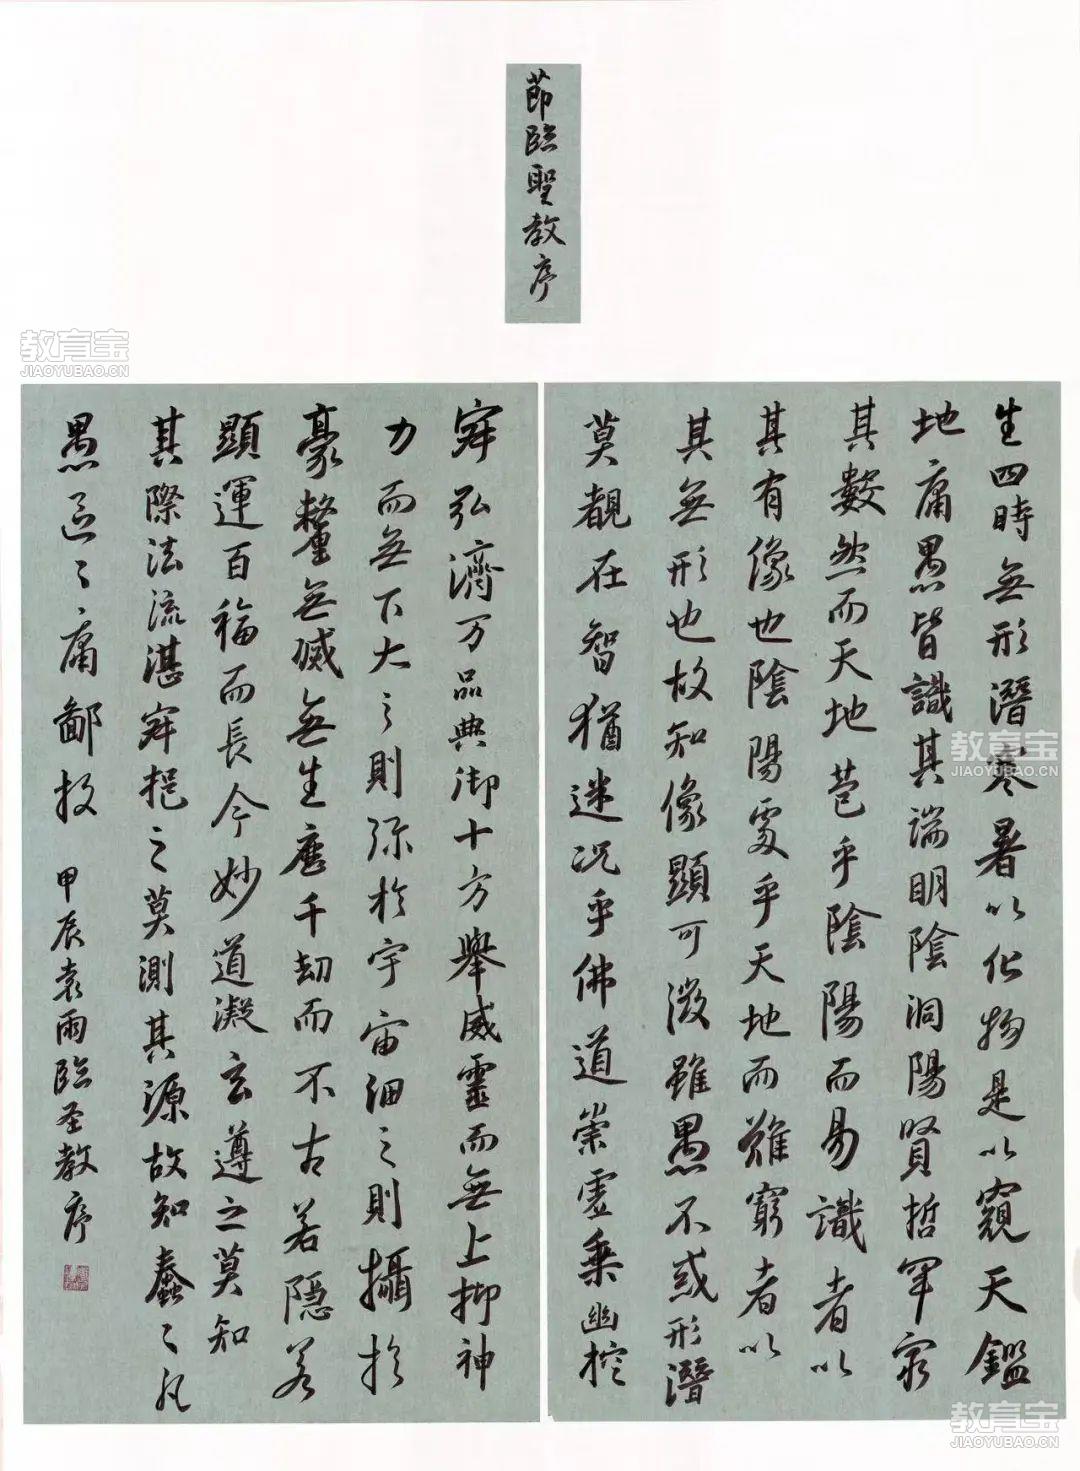 節臨聖教序
生四時無形潛寒暑以化物是以窺天鑑
地庸愚皆識其端明陰洞陽賢哲罕窮
其數然而天地苞乎陰陽而易識者以
其有像也陰陽處乎天地而難窮者以
其無形也故知像顯可徵雖愚不惑形潛
莫覩在智猶迷况乎佛道崇虛乘幽控
寂弘濟万品典御十方舉威靈而無上抑神
力而無下大之則弥於宇宙細之則攝於
豪釐無滅無生歷千劫而不古若隱若
顯運百福而長今妙道凝玄遵之莫知
其際法流湛寂挹之莫測其源故知蠢〻凡
愚區〻庸鄙投
甲辰袁雨臨圣教序
教育宝
JIAOYUBAO.CN
教育宝
JIAOYUBAO.CN
教育宝
JIAOYUBAO.CN